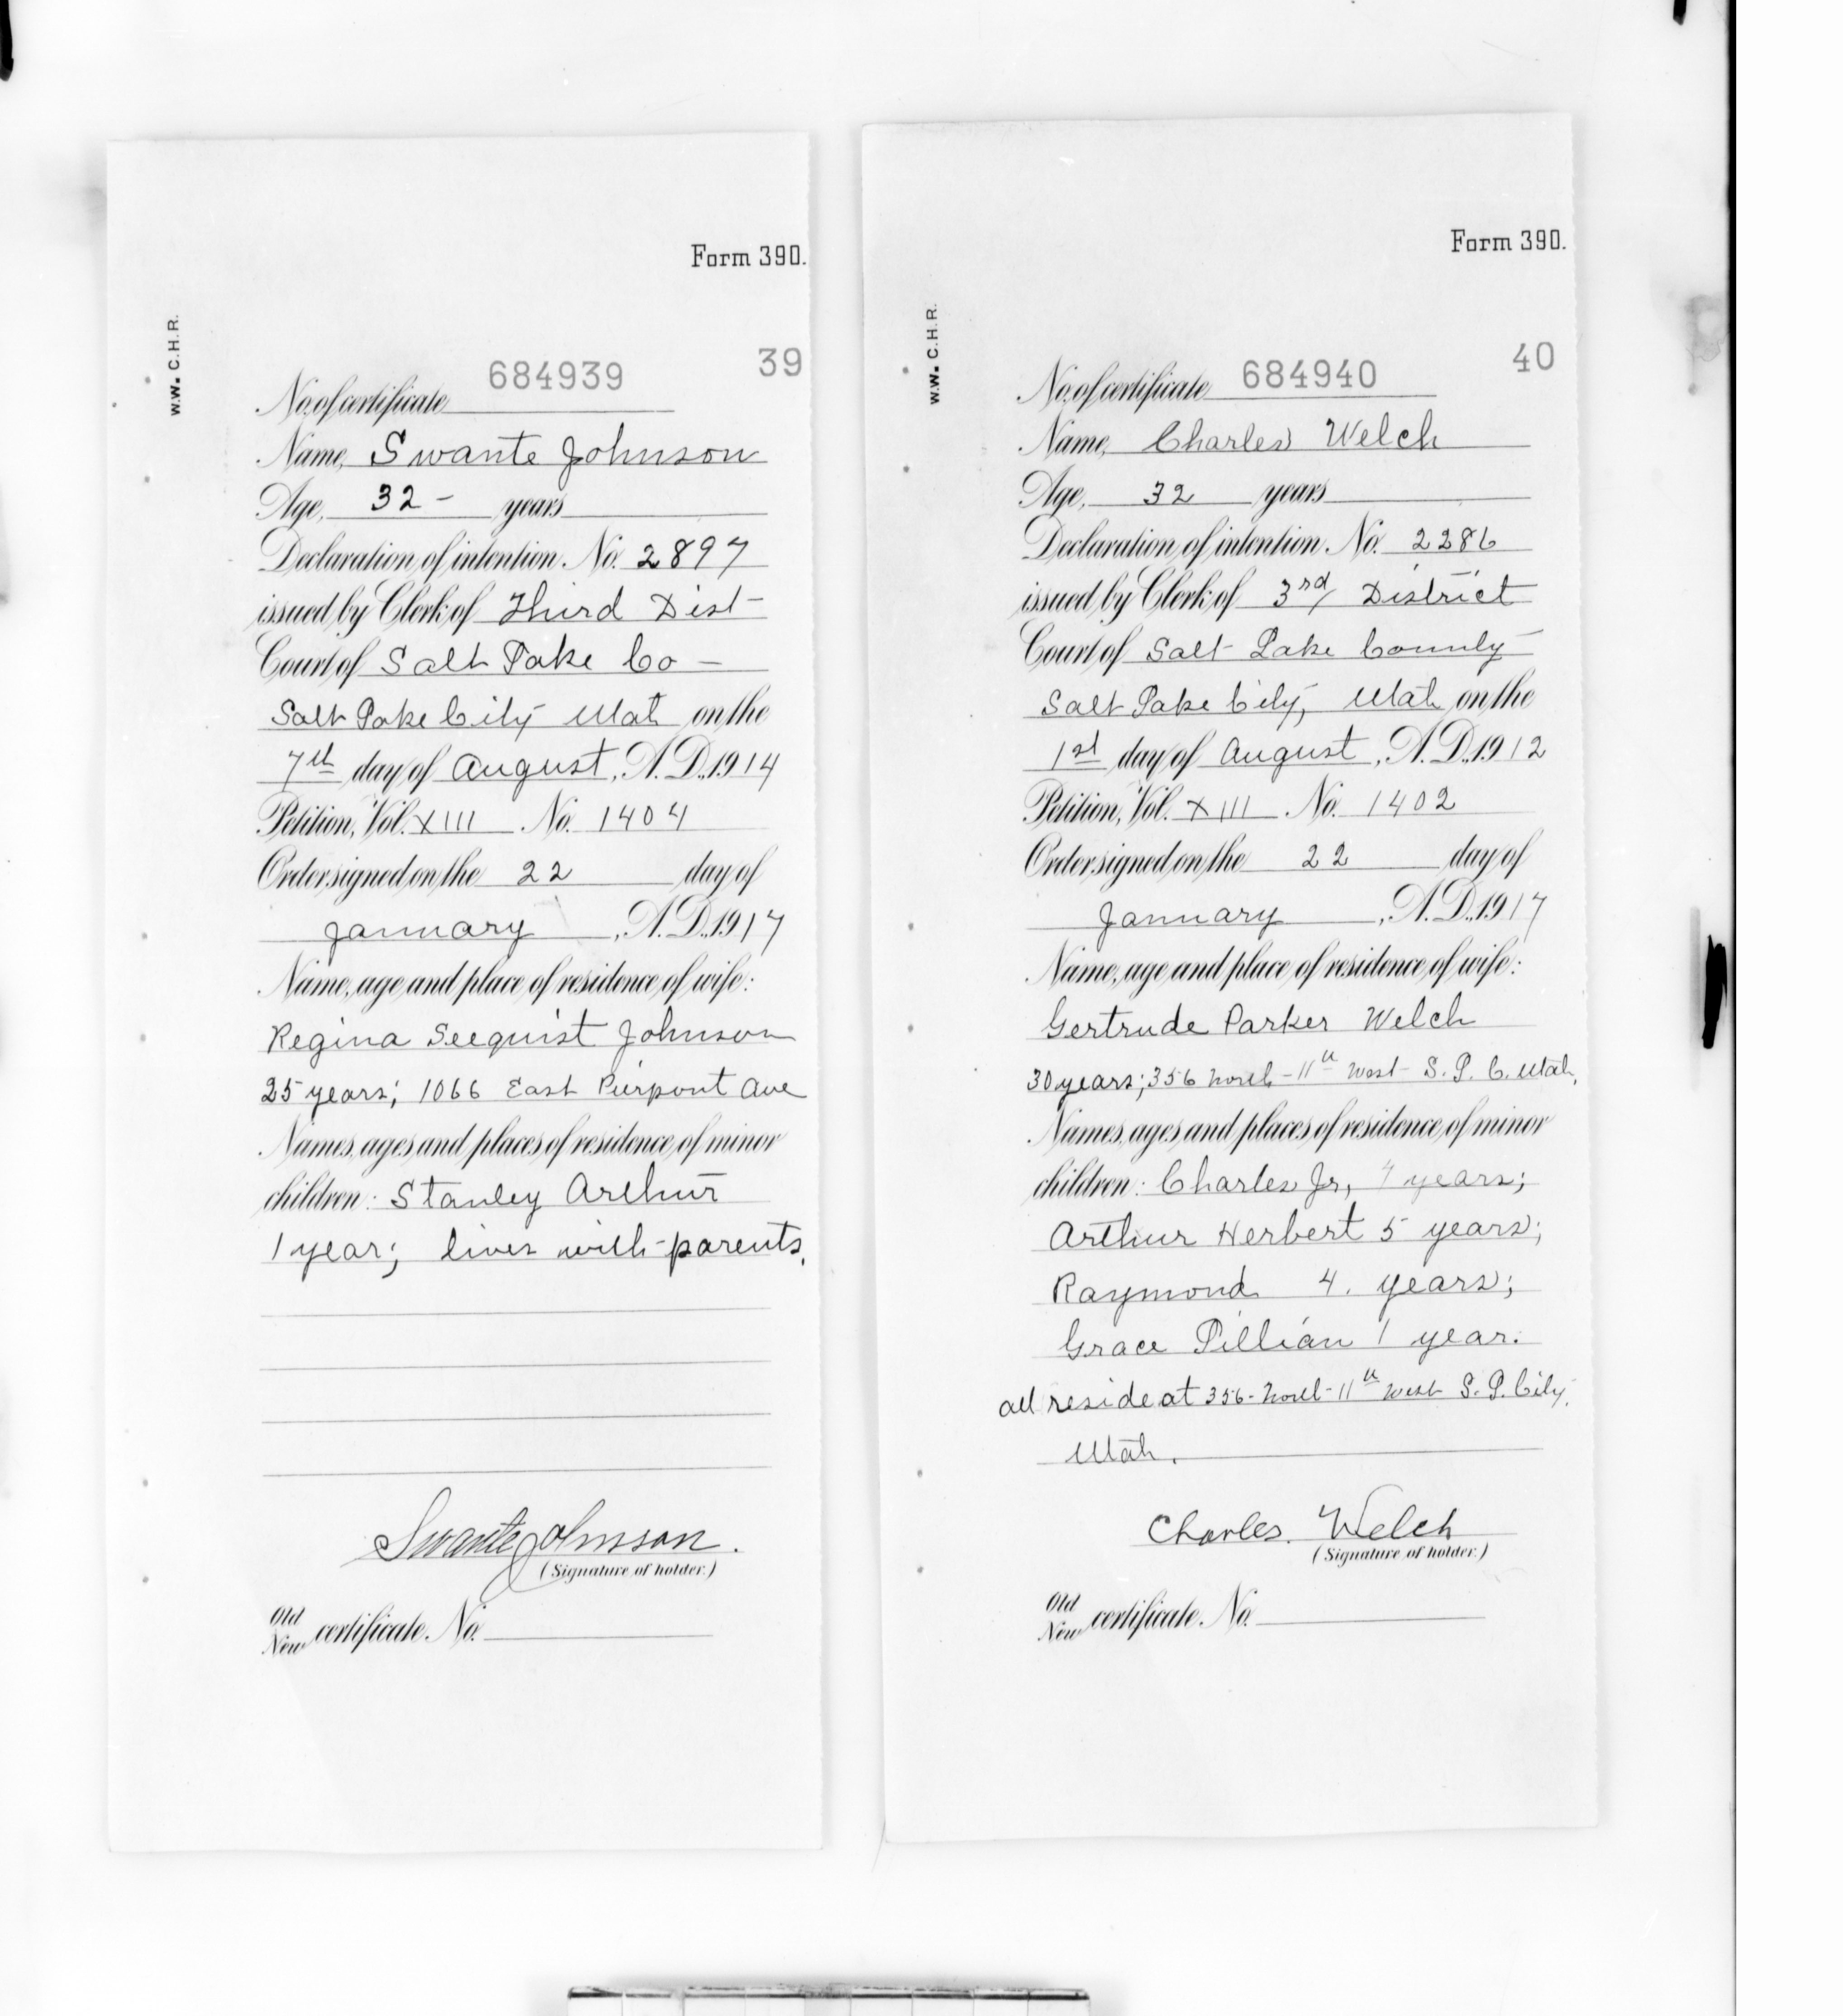 Form 390.
W.W. C.H.R.
684939 39
No. of certificate
Name, Swante Johnson
Age, 32 - years
Declaration of intention No. 2897
issued by Clerk of Third Dist
Court of Salt Lake Co -
Salt Lake City Utah on the
7th day of August, A.D. 1914
Petition, Vol. XIII No. 1404
Order signed on the 22 day of
January, A.D. 1917
Name, age and place of residence of wife:
Regina Seequist Johnson
25 years; 1066 East Pierpont Ave
Names, ages and places of residence of minor
children: Stanley Arthur
1 year; lives with parents.
Swante Johnson.
(Signature of holder.)
Old
New certificate No.
Form 390.
W.W. C.H.R.
684940 40
No. of certificate
Name, Charles Welch
Age, 32 years
Declaration of intention No. 2286
issued by Clerk of 3rd District
Court of Salt Lake County
Salt Lake City, Utah on the
1st day of August, A.D. 1912
Petition, Vol. XIII No. 1402
Order signed on the 22 day of
January, A.D. 1917
Name, age and place of residence of wife:
Gertrude Parker Welch
30 years; 356 North 11th West S. L. C. Utah,
Names, ages and places of residence of minor
children: Charles Jr, years;
Arthur Herbert 5 years;
Raymond 4. years;
Grace Lillian 1 year.
all reside at 356 - North - 11th West S. L. City.
Utah.
Charles. Welch
(Signature of holder.)
Old
New certificate No.